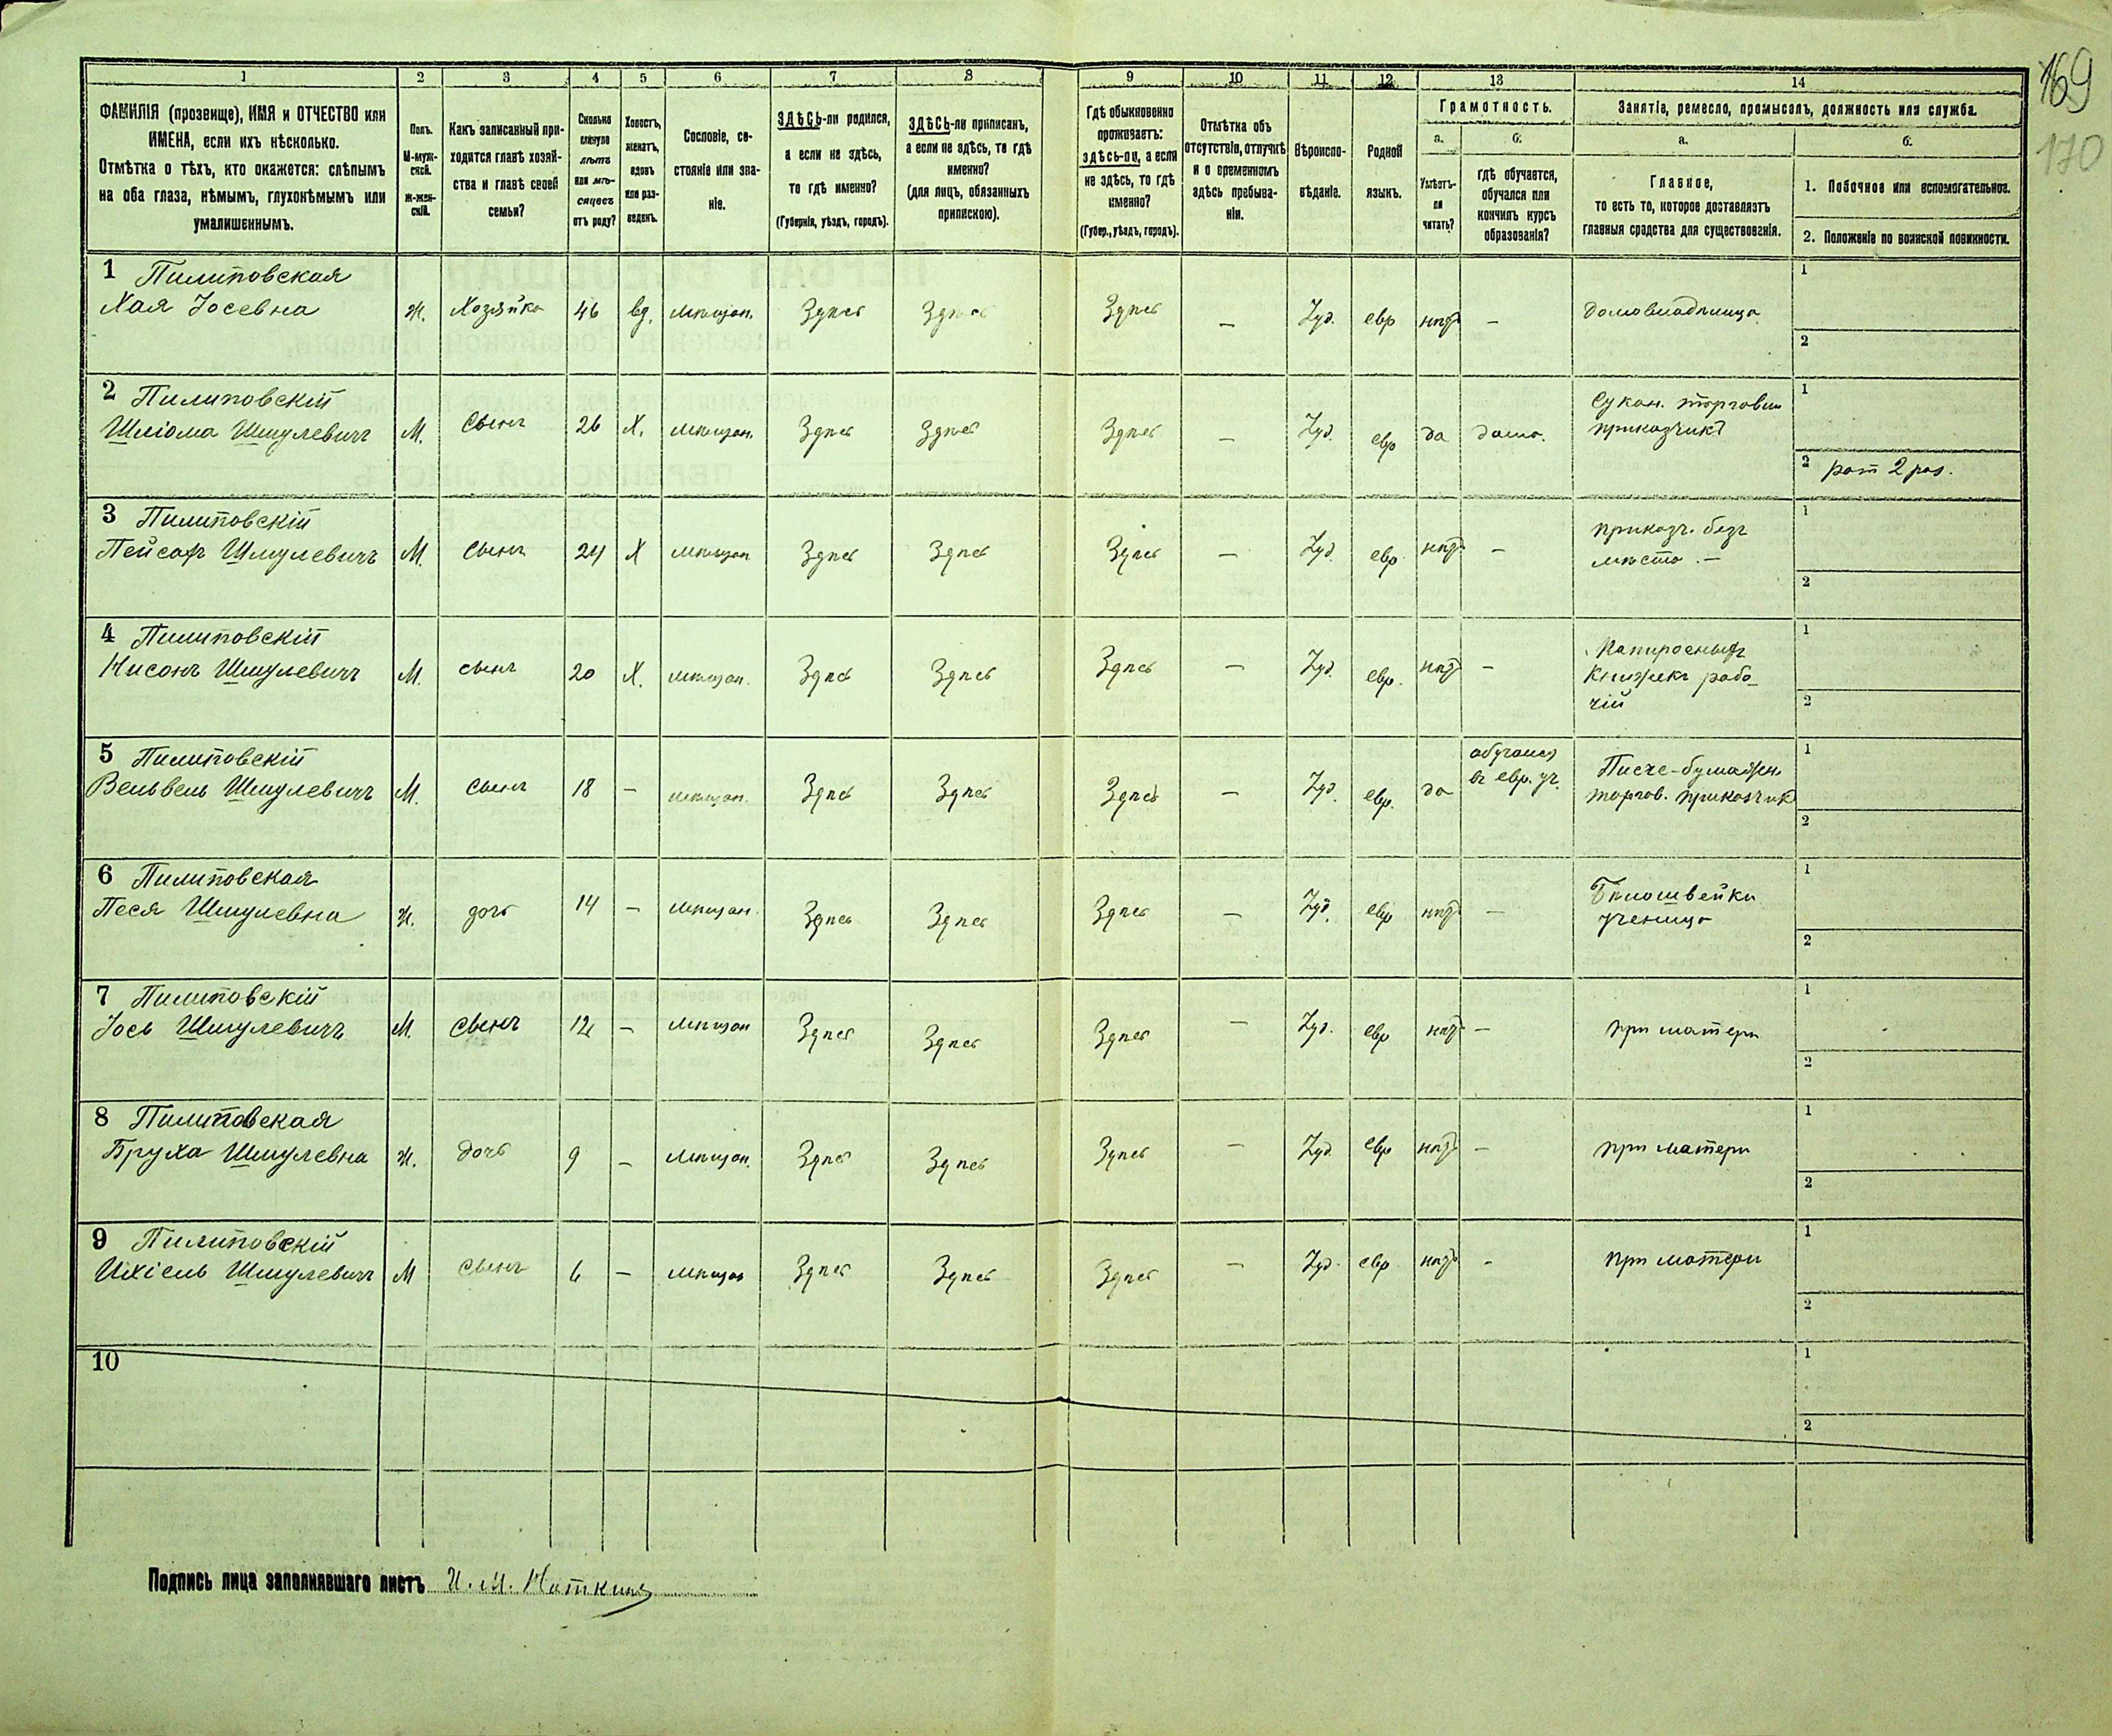 169
170
1
2
3
4
5
6
7
8
9
10
11
12
13
14
ФАМИЛІЯ (прозвище), ИМЯ и ОТЧЕСТВО или
ИМЕНА, если ихъ нѣсколько.
Отмѣтка о тѣхъ, кто окажется: слѣпымъ
на оба глаза, нѣмымъ, глухонѣмымъ или
умалишеннымъ.
Полъ.
М-муж-
ской.
Ж-жен-
скій.
Какъ записанный при-
ходится главѣ хозяй-
ства и главѣ своей
семьи?
Сколько
минуло
лѣтъ
или мѣ-
сяцевъ
отъ роду?
Холостъ,
женатъ,
вдовъ
или раз-
веденъ.
Сословіе, со-
стояніе или зва-
ніе.
ЗДѢСЬ-ли родился,
а если не здѣсь,
то гдѣ именно?
(Губернія, уѣздъ, городъ).
ЗДѢСЬ-ли приписанъ,
а если не здѣсь, то гдѣ
именно?
(для лицъ, обязанныхъ
припискою).
Гдѣ обыкновенно
проживаетъ:
здѣсь-ли, а если
не здѣсь, то гдѣ
именно?
(Губер., уѣздъ, городъ).
Отмѣтка объ
отсутствіи, отлучкѣ
и о временномъ
здѣсь пребыва-
ніи.
Вѣроиспо-
вѣданіе.
Родной
языкъ.
Грамотность.
а.
б.
Умѣетъ-
ли
читать?
гдѣ обучается,
обучался или
кончилъ курсъ
образованія?
Занятіе, ремесло, промыселъ, должность или служба.
а.
б.
Главное,
то есть то, которое доставляетъ
главныя средства для существованія.
1. Побочное или вспомогательное.
2. Положеніе по воинской повинности.
1 Пилиповская
Хая Іосевна
Ж. Хозяйка 46 вд. мѣщан. Здѣсь Здѣсь Здѣсь — Іуд. евр нѣтъ — домовладѣлица
1
2
2 Пилиповскій
Шліома Шмулевичъ
М. Сынъ 26 Х. мѣщан. Здѣсь Здѣсь Здѣсь — Іуд. евр да дома. Сукон. торговли
приказчикъ
1
2 рат 2 раз.
3 Пилиповскій
Пейсах Шмулевичъ
М. сынъ 24 Х мѣщан Здѣсь Здѣсь Здѣсь — Іуд. евр нѣтъ — приказч. безъ
мѣста. —
1
2
4 Пилиповскій
Нисонъ Шмулевичъ
М. сынъ 20 Х. мѣщан. Здѣсь Здѣсь Здѣсь — Іуд. евр. нѣтъ — Папиросныхъ
книжекъ рабо-
чій
1
2
5 Пилиповскій
Вельвель Шмулевичъ
М. сынъ 18 — мѣщан. Здѣсь Здѣсь Здѣсь — Іуд. евр. да обучался
въ евр. уч.
Писче-бумажн.
торгов. приказчик
1
2
6 Пилиповская
Песя Шмулевна
Ж. дочь 14 — мѣщан. Здѣсь Здѣсь Здѣсь — Іуд. евр нѣтъ — Бѣлошвейки
ученица
1
2
7 Пилиповскій
Іось Шмулевичъ
М. сынъ 12 — мѣщан Здѣсь Здѣсь Здѣсь — Іуд. евр нѣтъ — при матери
1
2
8 Пилиповская
Бруха Шмулевна
Ж. дочь 9 — мѣщан. Здѣсь Здѣсь Здѣсь — Іуд евр нѣтъ — при матери
1
2
9 Пилиповскій
Ихіель Шмулевич
М сынъ 6 — мѣщан Здѣсь Здѣсь Здѣсь — Іуд. евр нѣтъ - при матери
1
2
10
1
2
Подпись лица заполнявшаго листъ И. М. Наткинъ